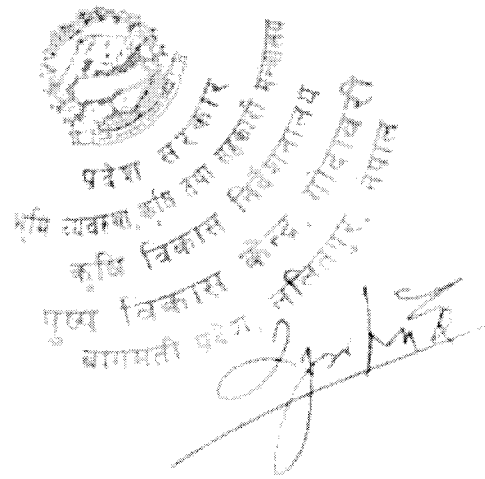 प्रदेश सरकार
भूमि व्यवस्था, कृषि तथा सहकारी मन्त्रालय
कृषि विकास निर्देशनालय
पुष्प विकास केन्द्र, गोदावरी
ललितपुर,
बागमती प्रदेश, नेपाल